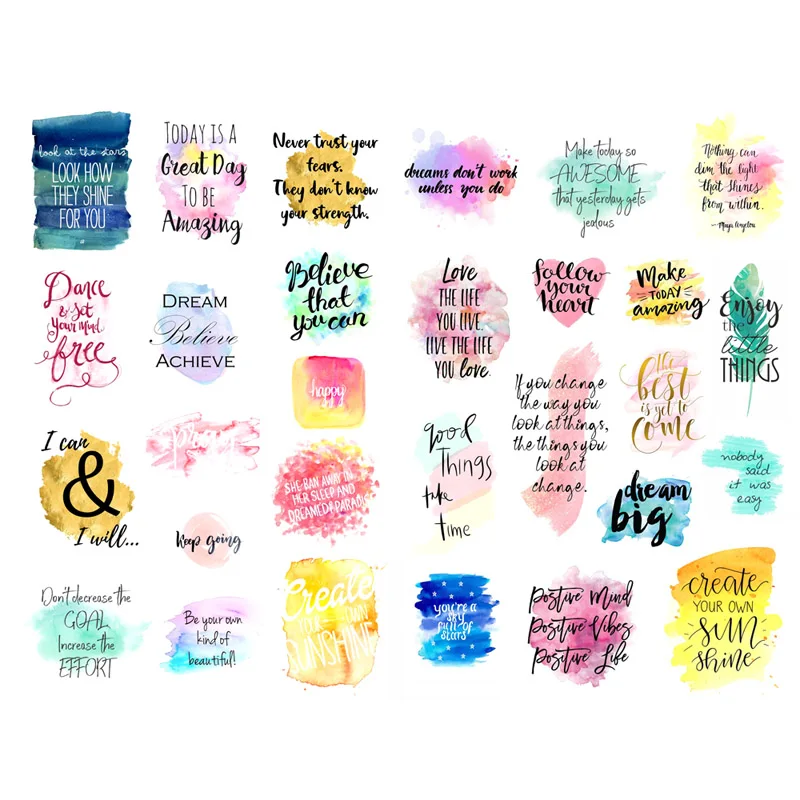 look at the stars
LOOK HOW
THEY SHINE
FOR YOU
TODAY IS A
Great Day
TO BE
Amazing
Never trust your
fears.
They don't know
your strength.
dreams don't work
unless you do
Make today so
AWESOME
that yesterday gets
jealous
Nothing can
dim the light
that shines
from within.
- Maya Angelou
Dance
& set
your mind
free
DREAM
Believe
ACHIEVE
Believe
that
you can
Love
THE LIFE
YOU LIVE.
LIVE THE LIFE
YOU love.
follow
your
heart
Make
TODAY
amazing
Enjoy
the
little
THINGS
happy
I can
&
I will...
pray
keep going
SHE RAN AWAY IN
HER SLEEP AND
DREAMED PARADISE
good
Things
take
time
If you change
the way you
look at things,
the things you
look at
change.
the
best
is yet to
come
dream
big
nobody
said
it was
easy
Don't decrease the
GOAL
Increase the
EFFORT
Be your own
kind of
beautiful!
Create
YOUR OWN
SUNSHINE
you're a
sky
full of
stars
Positive Mind
Positive Vibes
Positive Life
create
YOUR OWN
sun
shine